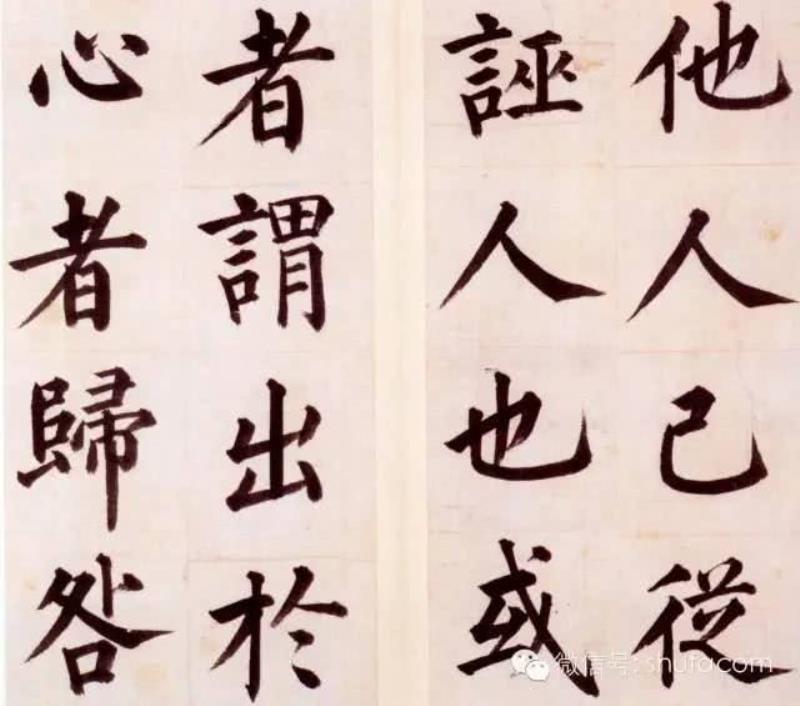 他人己從
誣人也或
者謂出於
心者歸咎
微信号: shufacom